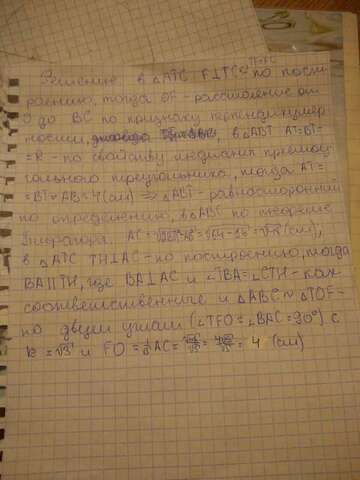 TF=FC
Решение: в △ATC F⊥TC по пост-
роению, тогда OF - расстояние от
O до BC по признаку перпендикуляр
ности, в △ABT AT=BT=
=R - по свойству медианы прямоу-
гольного треугольника, тогда AT=
=BT=AB=4(см) ⇒ △ABT - равносторонний
по определению, в △ABT по теореме
Пифагора AC=√64-16=√48(см),
в △ATC TH⊥AC - по построению, тогда
BA∥TH, где BA⊥AC и ∠TBA=∠CTH - как
соответственные и △ABC~△TOF-
по двум углам (∠TFO=∠BAC=90°) с
k=√3 и FO=AC= = =4 (см)